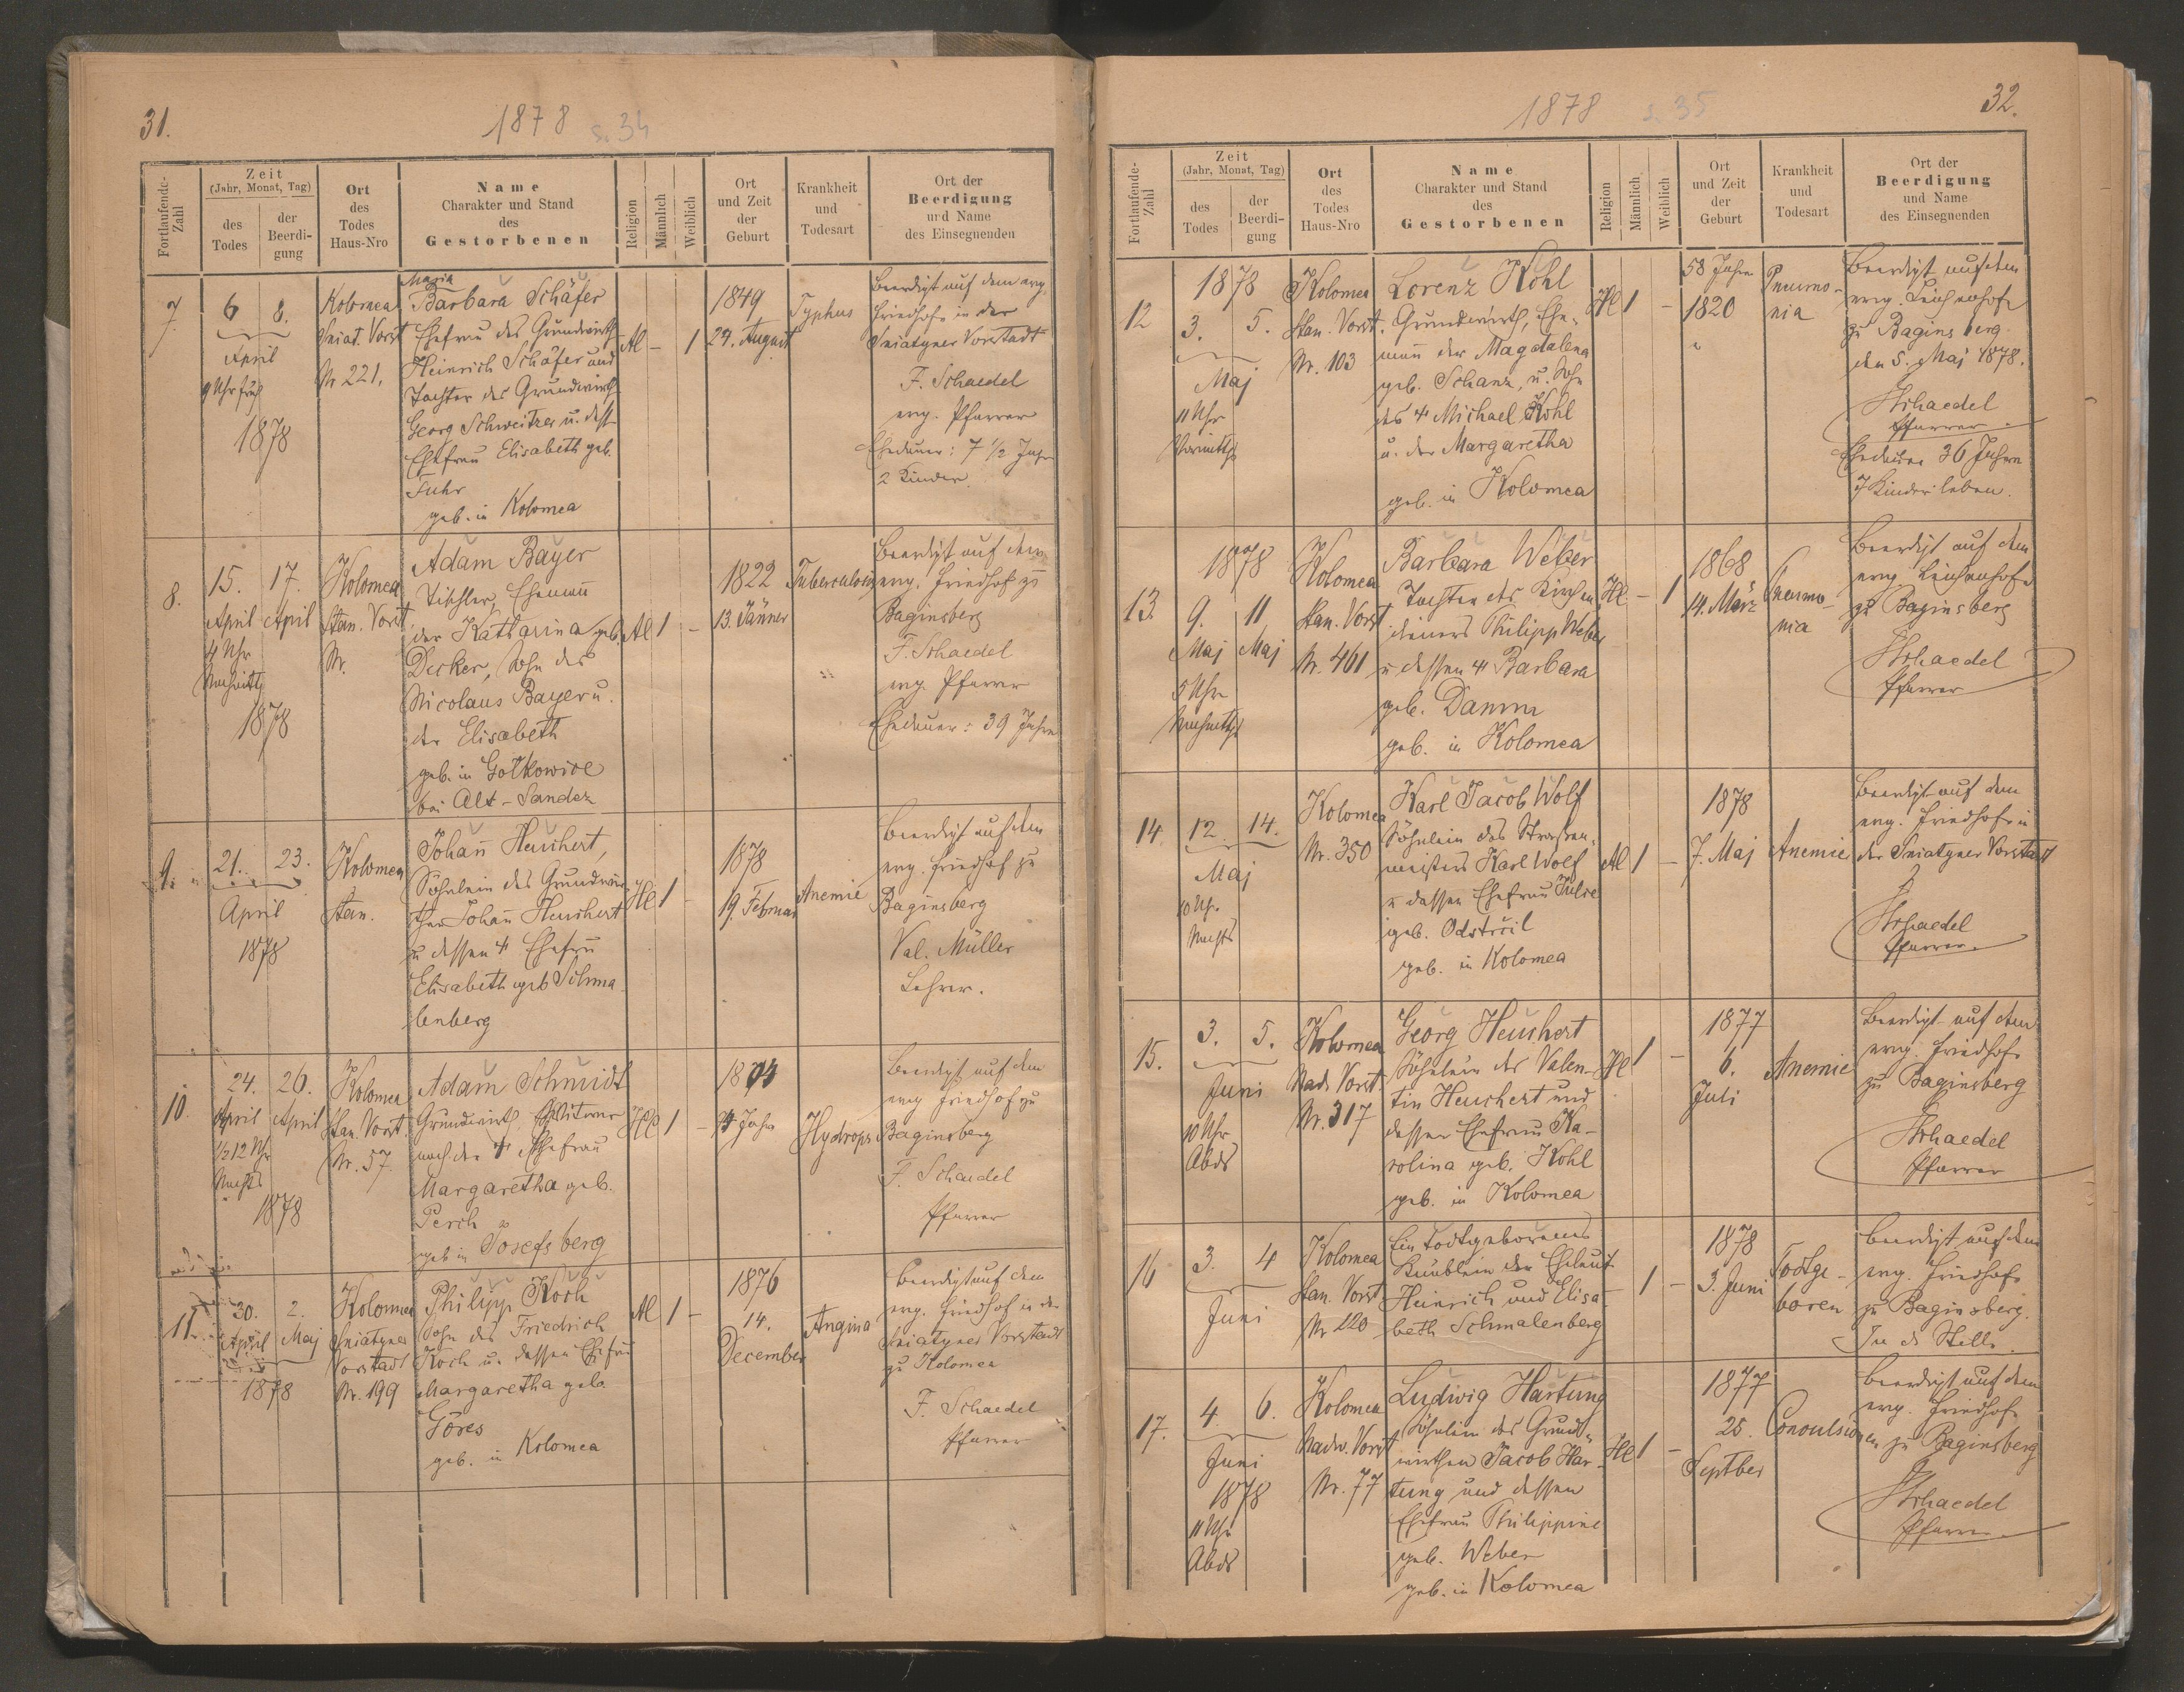 31.
1878
s. 34
Fortlaufende-Zahl
Zeit
(Jahr, Monat, Tag)
des
Todes
der
Beerdi-
gung
Ort
des
Todes
Haus-Nro
Name
Charakter und Stand
des
Gestorbenen
Religion
Männlich
Weiblich
Ort
und Zeit
der
Geburt
Krankheit
und
Todesart
Ort der
Beerdigung
und Name
des Einsegnenden
7.
6 8.
April
9 Uhr früh
1878
Kolomea
Sniat. Vorst
Nr 221.
Maria
Barbara Schäfer
Ehefrau des Grundwirth
Heinrich Schäfer und
Tochter des Grundwirth
Georg Schweitzer u. dess
Ehefrau Elisabeth geb.
Fuhr
geb. in Kolomea
Al
-
1
1849
24. August
Typhus
Beerdigt auf dem evg.
Friedhofe in der
Sniatyner Vorstadt
F. Schaedel
evg. Pfarrer
Ehedauer: 7 1/2 Jahr
2 Kinder.
8.
15. 17.
April April
4 Uhr
Nachmittg
1878
Kolomea
Stan. Vorst.
Nr.
Adam Bayer
Tischler, Ehemañ
der Katharina geb.
Decker, Sohn des
Nicolaus Bayer u.
der Elisabeth
geb. in Gołkowice
bei Alt-Sandez
Al
1
-
1822
13. Jänner
Tuberculosis
Beerdigt auf dem
evg. Friedhof zu
Baginsberg
F. Schaedel
evg. Pfarrer
Ehedauer: 39 Jahre
9.
21. 23.
April
1878
Kolomea
Stan.
Johañ Heuchert,
Söhnlein des Grundwir-
then Johañ Heuchert
u dessen + Ehefrau
Elisabeth geb Schma-
lenberg
Hl
1
-
1878
19. Februar
Anemie
Beerdigt auf dem
evg. Friedhof zu
Baginsberg
Val. Müller
Lehrer.
10.
24. 26.
April April
1/2 12 Uhr
Nachts
1878
Kolomea
Stan. Vorst.
Nr. 57.
Adam Schmidt
Grundwirth, Witwer
nach der + Ehefrau
Margaretha geb.
Perch
geb in Josefsberg
Hl
1
-
Jahr
Hydrops
Beerdigt auf dem
evg Friedhof zu
Baginsberg
F. Schaedel
Pfarrer
11.
30. 2.
April Maj
1878
Kolomea
Sniatyner
Vorstadt
Nr. 199
Philipp Koch
Sohn des Friedrich
Koch u. dessen Ehefrau
Margaretha geb.
Göres
geb. in Kolomea
Al
1
-
1876
14.
December
Angina
Beerdigt auf dem
evg. Friedhof in der
Sniatyner Vorstadt
zu Kolomea
F. Schaedel
Pfarrer
32.
1878
s. 35
Fortlaufende-Zahl
Zeit
(Jahr, Monat, Tag)
des
Todes
der
Beerdi-
gung
Ort
des
Todes
Haus-Nro
Name
Charakter und Stand
des
Gestorbenen
Religion
Männlich
Weiblich
Ort
und Zeit
der
Geburt
Krankheit
und
Todesart
Ort der
Beerdigung
und Name
des Einsegnenden
12
1878
3. 5.
Maj
11 Uhr
Vormittg
Kolomea
Stan. Vorst.
Nr. 103
Lorenz Kohl
Grundwirth, Ehe-
mañ der Magdalena
geb. Schanz, u. Sohn
des + Michael Kohl
u. der Margaretha
geb. in Kolomea
Hl
1
-
58 Jahre
1820
Pneumo-
nia
Beerdigt auf dem
evg. Leichenhofe
zu Baginsberg
den 5. Maj 1878.
Schaedel
Pfarrer
Ehedauer 36 Jahre
7 Kinder leben.
13.
1878
9. 11
Maj Maj
5 Uhr
Nachmittg
Kolomea
Stan. Vorst
Nr. 461
Barbara Weber
Tochter des Kirchen-
dieners Philipp Weber
u dessen + Barbara
geb. Damm
geb. in Kolomea
Hl.
-
1
1868
14. März
Pneumo-
nia
Beerdigt auf dem
evg. Leichenhofe
zu Baginsberg
Schaedel
Pfarrer
14.
12 14.
Maj
10 Uhr
Nachts
Kolomea
Nr. 350
Karl Jacob Wolf
Söhnlein des Straßen-
meisters Karl Wolf
u dessen Ehefrau Julie
geb. Odstrčil
geb. in Kolomea
Al
1
-
1878
7. Maj
Anemie
Beerdigt auf dem
evg. Friedhofe in
der Sniatyner Vorstadt
Schaedel
Pfarrer
15.
3. 5.
Juni
10 Uhr
Abds
Kolomea
Nadw Vorst
Nr. 317
Georg Heuchert
Söhnlein des Valen-
tin Heuchert und
dessen Ehefrau Ka-
rolina geb. Kohl
geb. in Kolomea
Hl
1
-
1877
6.
Juli
Anemie
Beerdigt auf dem
evg. Friedhofe
zu Baginsberg
Schaedel
Pfarrer
16
3. 4
Juni
Kolomea
Stan. Vorst
Nr 220
Ein todtgeborenes
Knäblein der Eheleute
Heinrich und Elisa-
beth Schmalenberg
1
-
1878
3. Juni
Todtge-
boren
Beerdigt auf dem
evg. Friedhofe
zu Baginsberg.
In der Stille.
17.
4. 6.
Juni
1878
11 Uhr
Abds
Kolomea
Nadw. Vorst
Nr. 77
Ludwig Hartung
Söhnlein des Grund-
wirthen Jacob Har-
tung und dessen
Ehefrau Philippine
geb. Weber
geb. in Kolomea
Hl
1
-
1877
28.
Septber
Convulsionen
Beerdigt auf dem
evg. Friedhofe
zu Baginsberg
Schaedel
Pfarrer